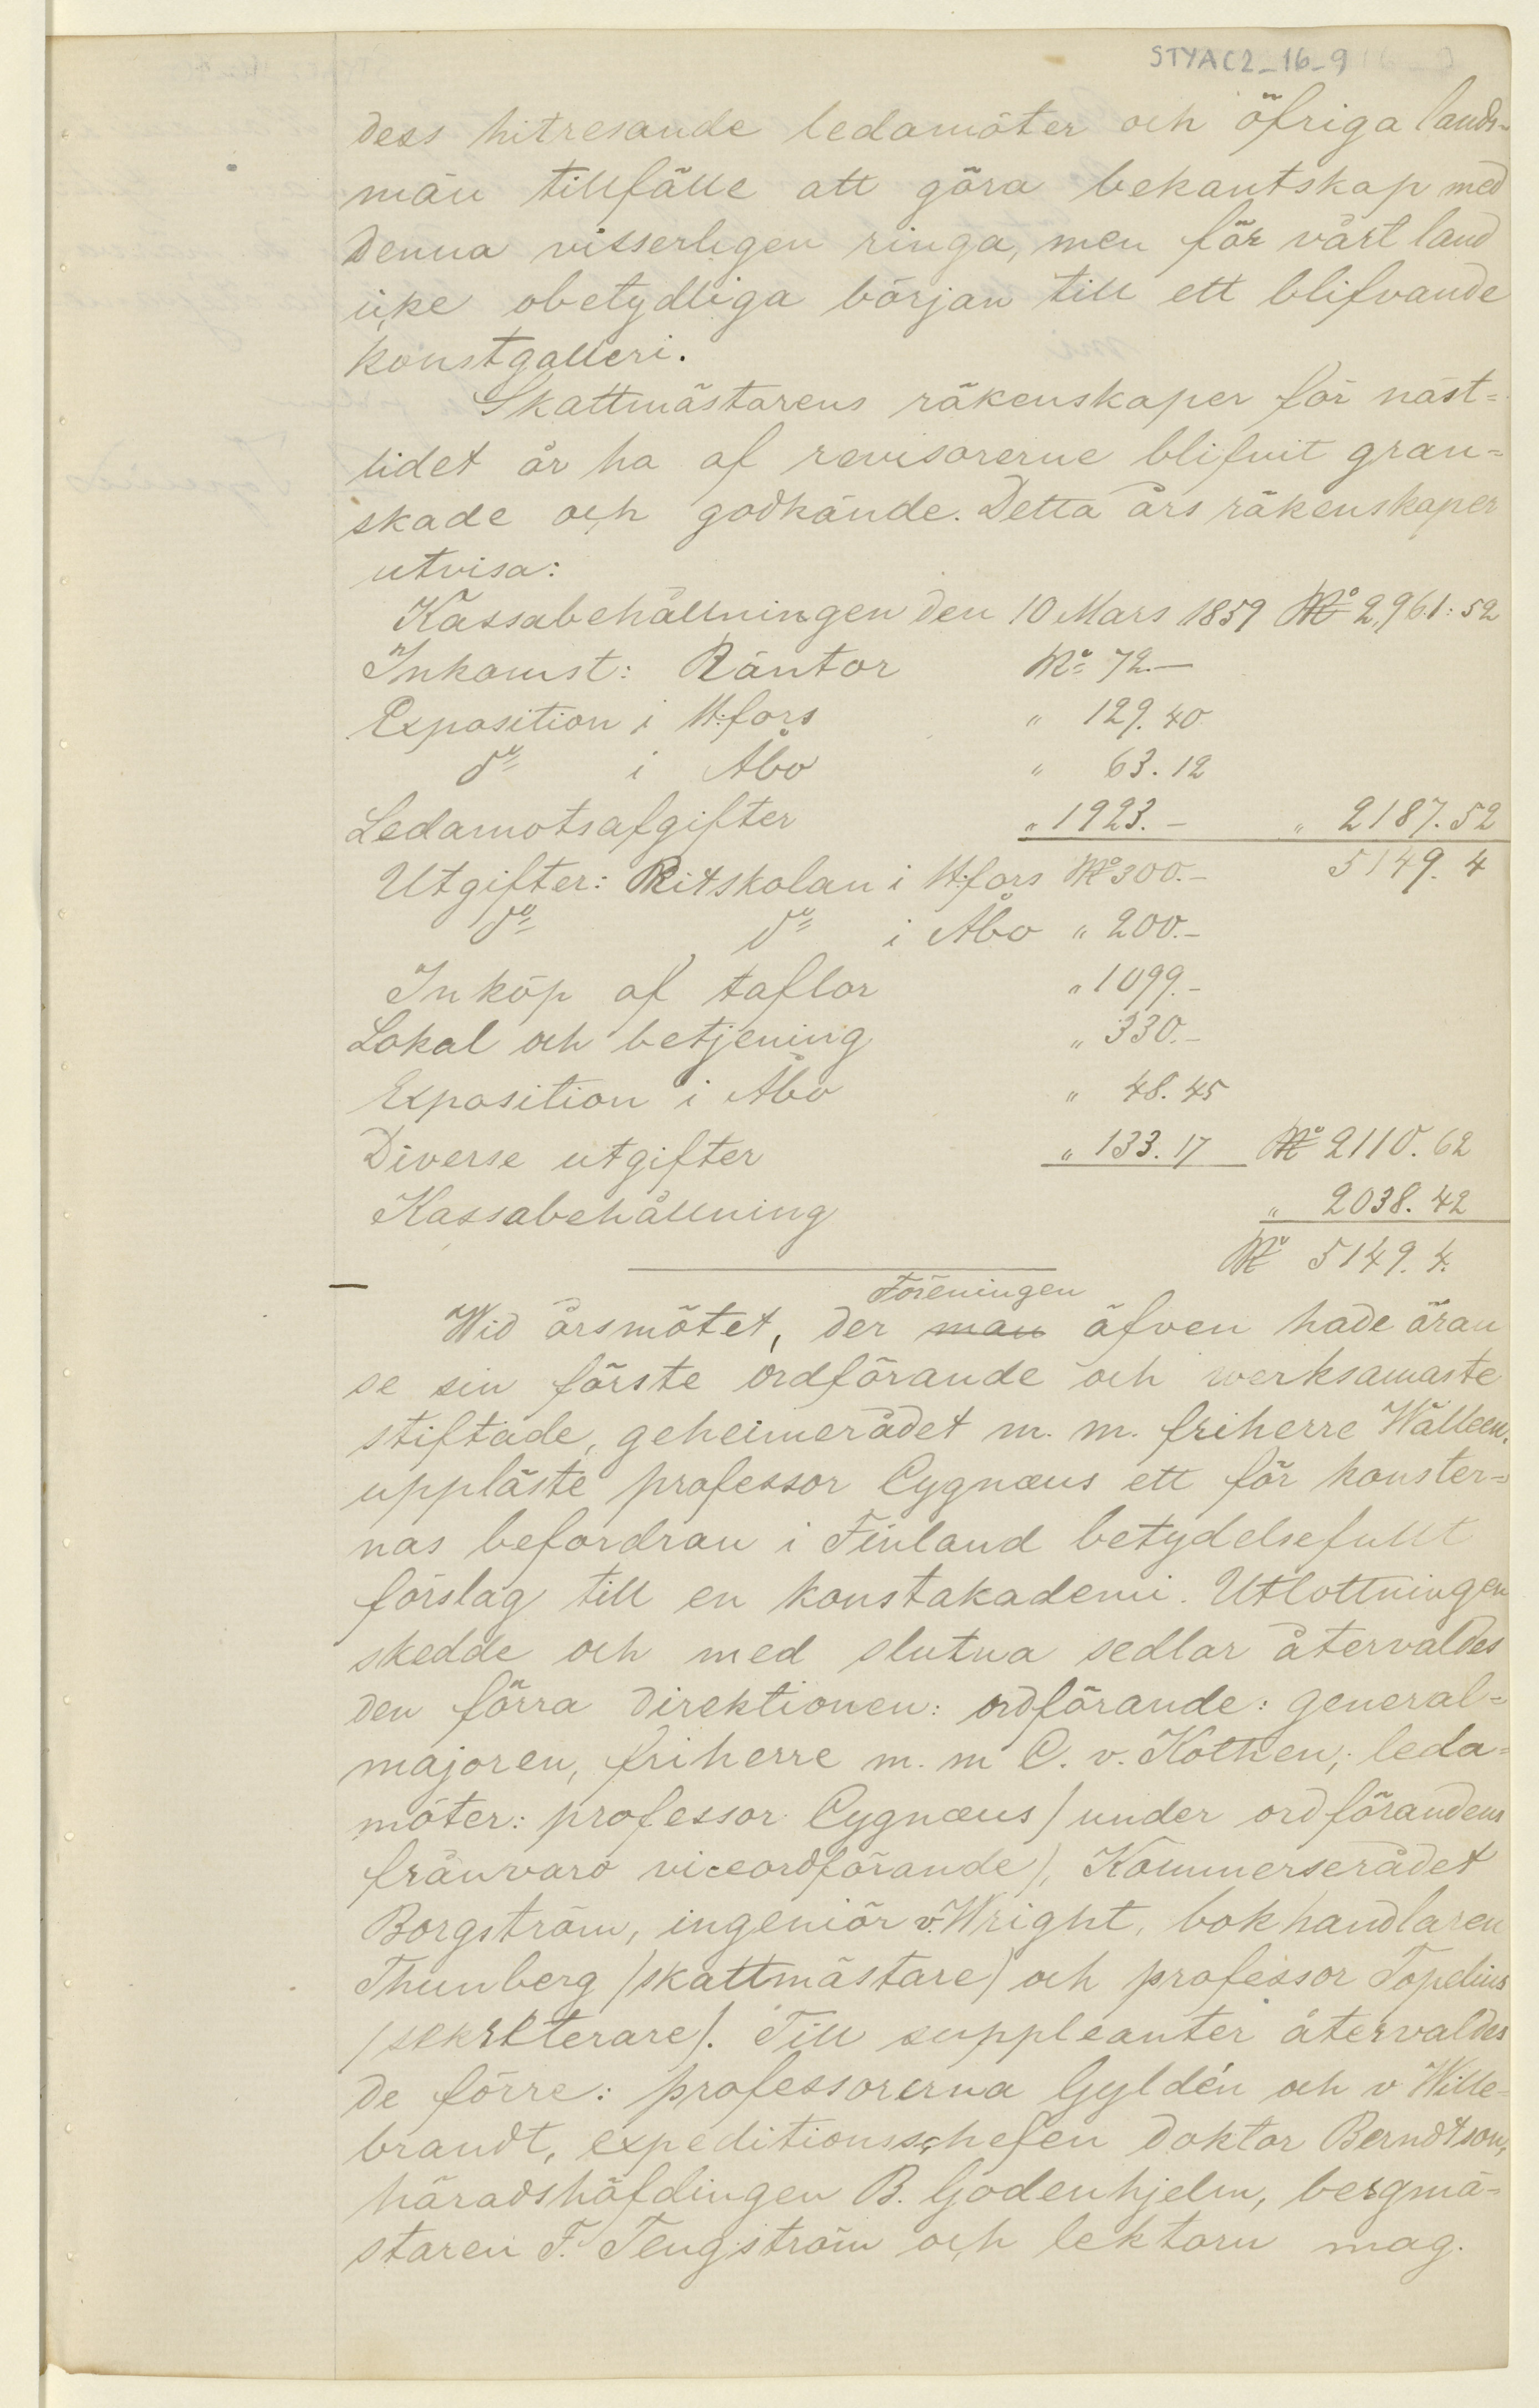 STYAC2_16_9
dess hitresande ledamöter och öfriga lands-
män tillfälle att göra bekantskap med
denna visserligen ringa, men för vårt land
icke obetydliga början till ett blifvande
konstgalleri.
Skattmästarens räkenskaper för näst=
lidet år ha af revisorerne blifvit gran=
skade och godkände. Detta års räkenskaper
utvisa:
Kassabehållningen den 10 Mars 1859 Rº 2,961:52
Inkomst: Räntor Rº 72.—
Exposition i H:fors " 129.40
dº i Åbo " 63.12
Ledamotsafgifter " 1923.— " 2187.52
Utgifter: Ritskolan i H:fors Rº 300.— 5149.4
dº dº i Åbo " 200.—
Inköp af taflor " 1099.—
Lokal och betjening " 330.—
Exposition i Åbo " 48.45
Diverse utgifter " 133.17 Rº 2110.62
Kassabehållning " 2038.42
Rº 5149.4.
Föreningen
Wid årsmötet, der man äfven hade äran
se sin förste ordförande och werksamaste
stiftade, geheimerådet m. m. friherre Walleen,
uppläste professor Cygnæus ett för konster=
nas befordran i Finland betydelsefullt
förslag till en konstakademi. Utlottningen
skedde och med slutna sedlar återvaldes
den förra direktionen: ordförande: general=
majoren, friherre m. m C. v. Kothen; leda=
möter: professor Cygnæus /under ordförandens
frånvaro viceordförande/, Kommerserådet
Borgström, ingeniör v. Wright, bokhandlaren
Thunberg /skattmästare/ och professor Topelius
/sekreterare/. Till suppleanter återvaldes
de förre: professorerna Gyldén och v Wille-
brandt, expeditionsschefen doktor Berndtson,
häradshöfdingen B. Godenhjelm, bergmä-
staren F. Tengström och lektorn mag.